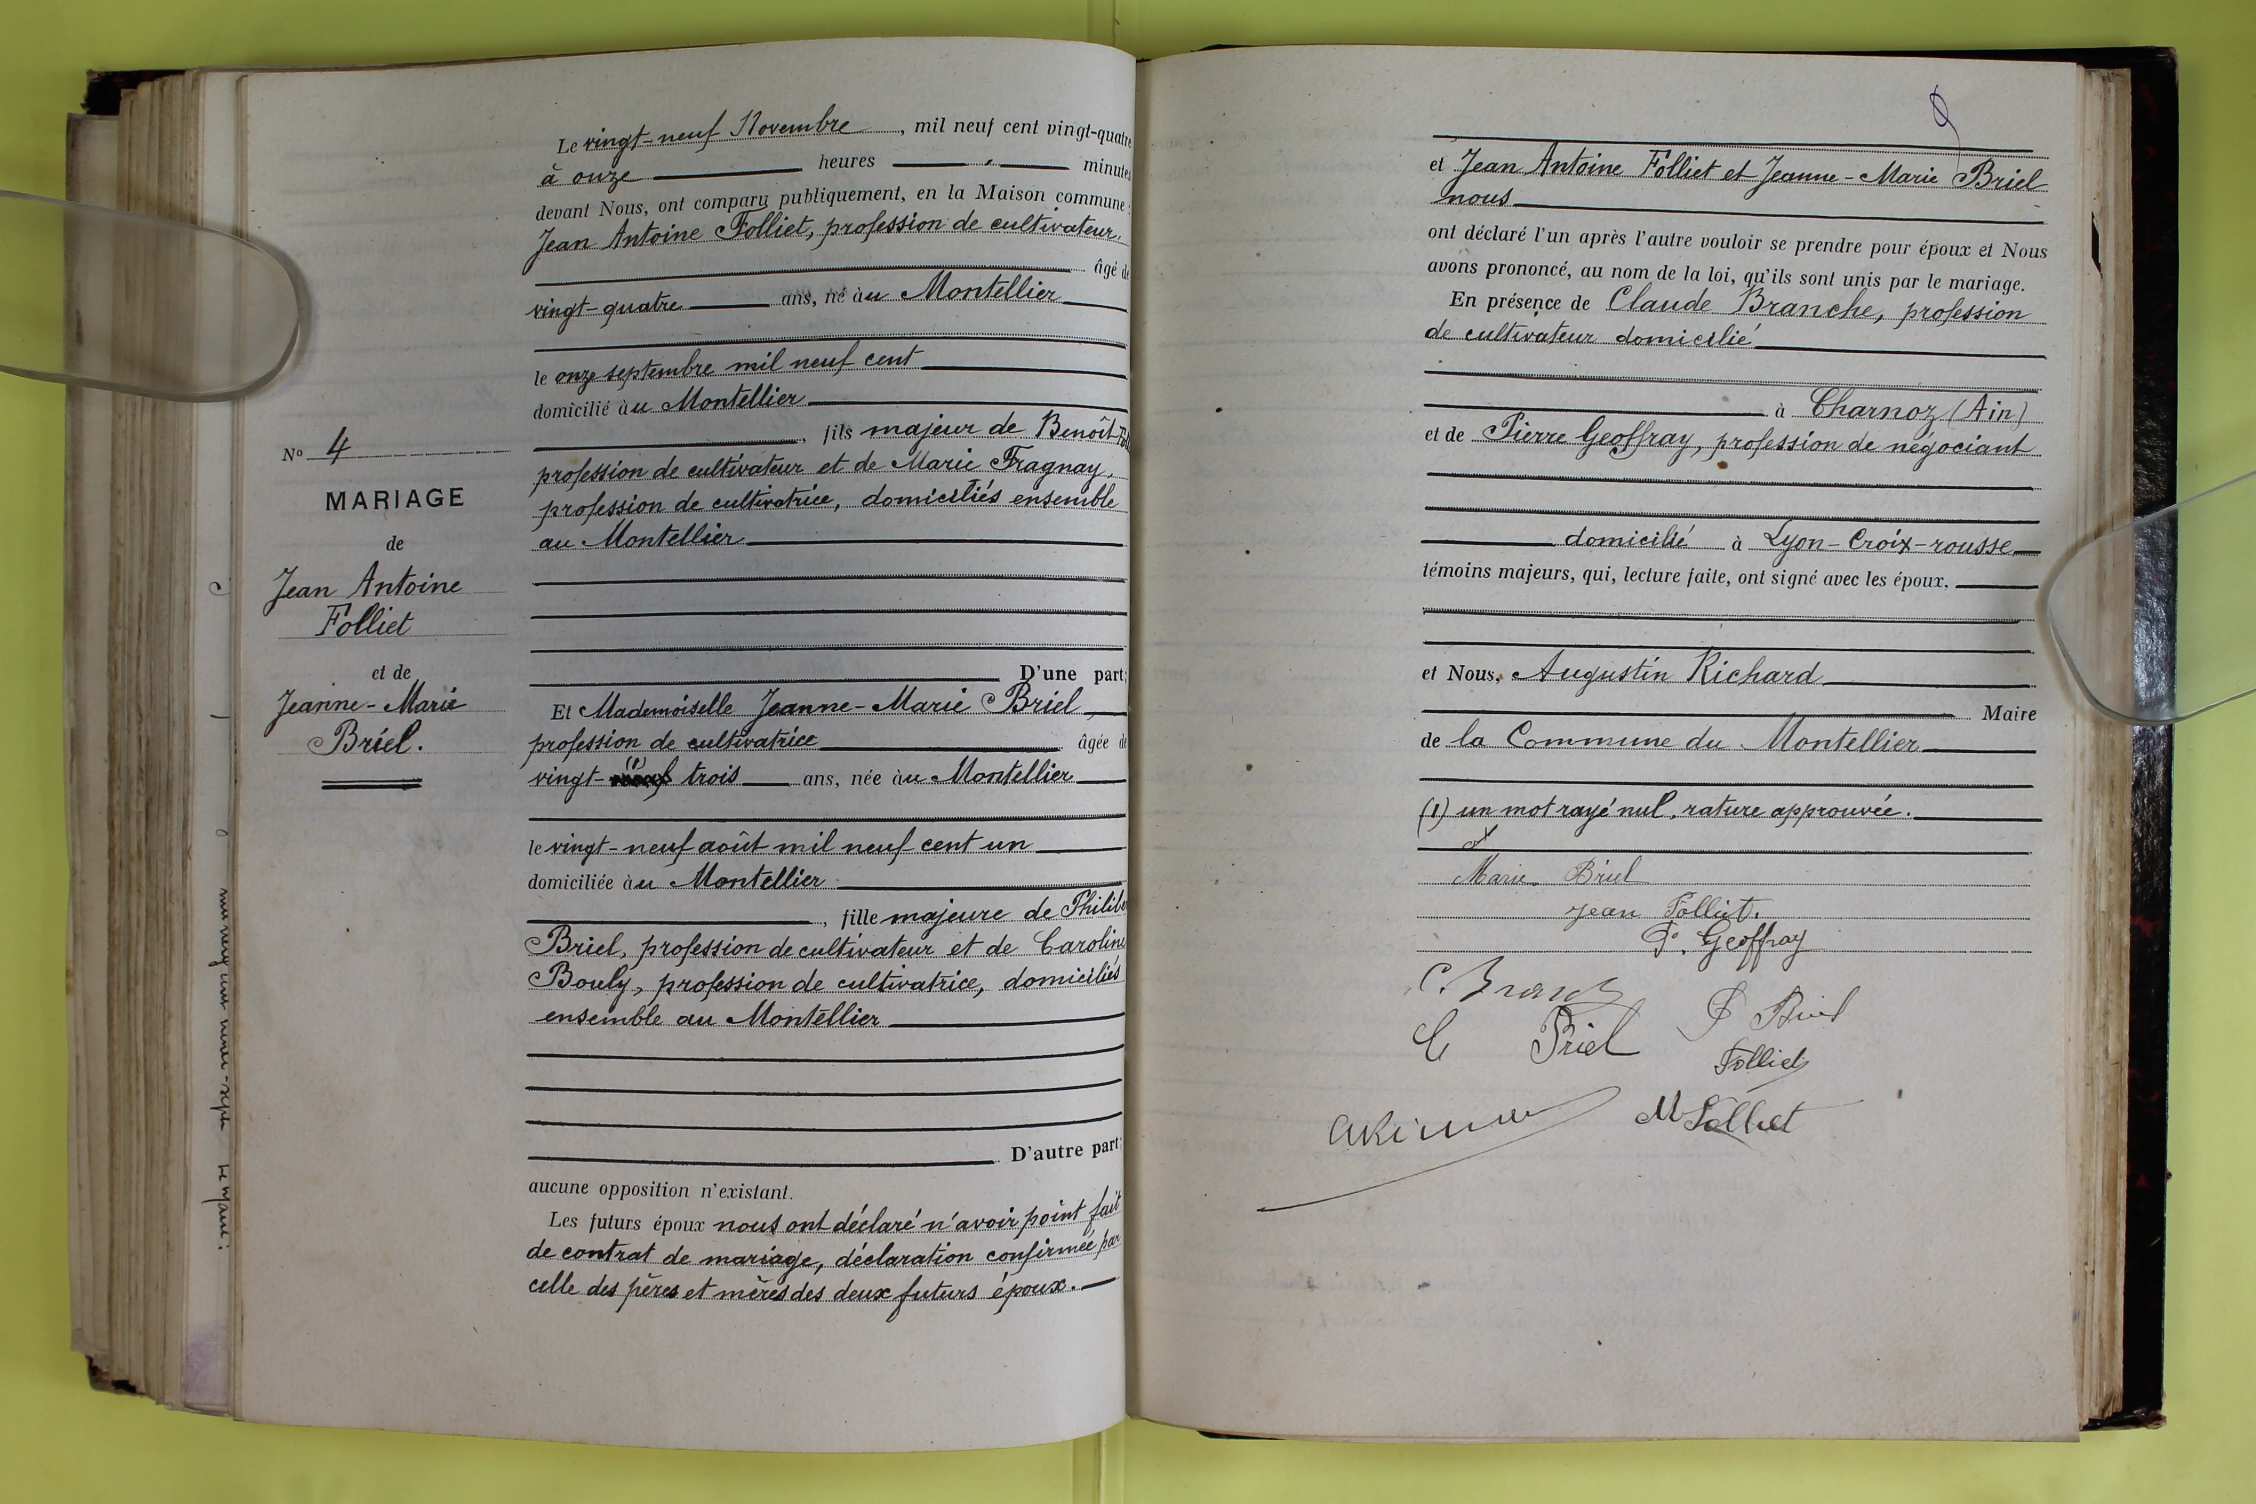 Le vingt-neuf Novembre, mil neuf cent vingt-quatre
à onze heures minutes
devant Nous, ont comparu publiquement, en la Maison commune :
Jean Antoine Folliet, profession de cultivateur,
âgé de
vingt-quatre ans, né au Montellier
le onze septembre mil neuf cent
domicilié au Montellier
, fils majeur de Benoît
profession de cultivateur et de Marie Fragnay,
profession de cultivatrice, domiciliés ensemble
au Montellier
D'une part;
Et Mademoiselle Jeanne-Marie Briel,
profession de cultivatrice âgée de
vingt- (1) trois ans, née au Montellier
le vingt-neuf août mil neuf cent un
domiciliée au Montellier
, fille majeure de Philibe
Briel, profession de cultivateur et de Caroline
Bouly, profession de cultivatrice, domiciliés
ensemble au Montellier
D'autre part;
aucune opposition n'existant.
Les futurs époux nous ont déclaré n'avoir point fait
de contrat de mariage, déclaration confirmée par
celle des pères et mères des deux futurs époux.
No 4
MARIAGE
de
Jean Antoine
Folliet
et de
Jeanne-Marie
Briel.
9
et Jean Antoine Folliet et Jeanne-Marie Briel
nous
ont déclaré l'un après l'autre vouloir se prendre pour époux et Nous
avons prononcé, au nom de la loi, qu'ils sont unis par le mariage.
En présence de Claude Branche, profession
de cultivateur domicilié
à Charnoz (Ain)
et de Pierre Geoffray, profession de négociant
domicilié à Lyon-Croix-rousse
témoins majeurs, qui, lecture faite, ont signé avec les époux.
et Nous, Augustin Richard
Maire
de la Commune du Montellier
(1) un mot rayé nul, rature approuvée.
Marie Briel
Jean Folliet.
P. Geoffray
C. Branch
P Briel
C Briel
Folliet
M Folliet